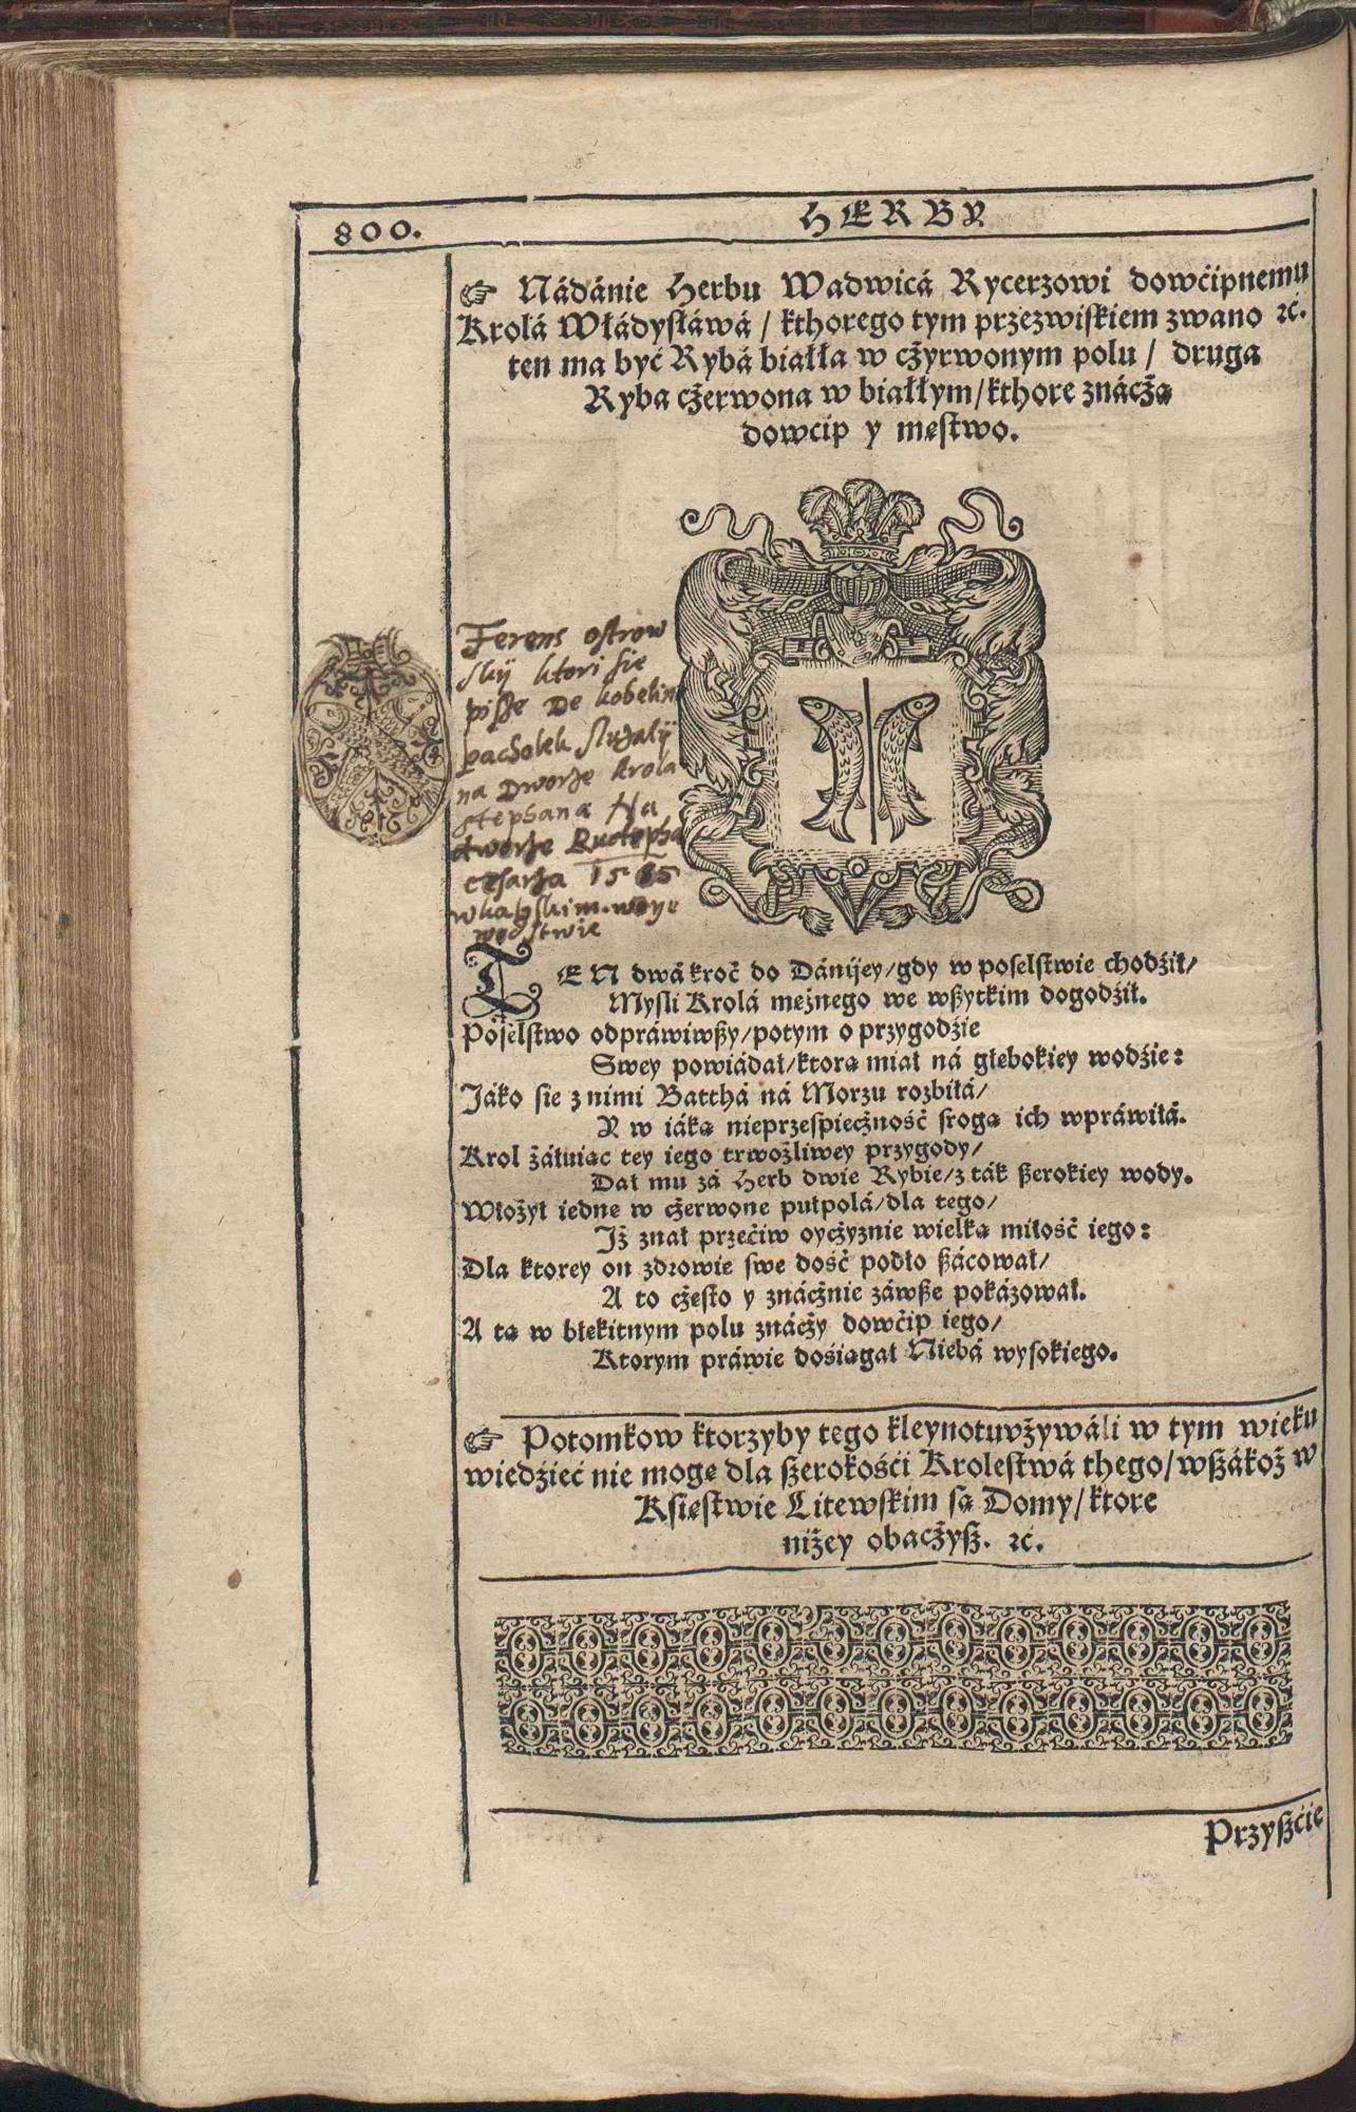 800.
HERBY
☞ Nádánie Herbu Wadwicá Rycerzowi dowćipnemu
Krolá Włádysłáwá / kthorego tym przezwiſkiem zwano ꝛc.
ten ma być Rybá białła w cżyrwonym polu / druga
Ryba cżerwona w białłym / kthore znácżą
dowcip y męſtwo.
Ferens oſtrow
ſkij ktori ſie
piſſe De kobelin
pacholek ſluzalÿ
na Dworze krola
ſtephana Na
dworze Rudolpha
ceſarza 1585
TEN dwá kroć do Dánijey / gdy w poſelſtwie chodźił /
Myſli Krolá mężnego we wßytkim dogodźił.
Poſelſtwo odpráwiwßy / potym o przygodźie
Swey powiádał / ktorą miał ná głębokiey wodźie:
Jáko ſie z nimi Batthá ná Morzu rozbiłá /
Y w iáką nieprzeſpiecżność ſrogą ich wpráwiłá.
Krol żáłuiąc tey iego trwożliwey przygody /
Dał mu zá Herb dwie Rybie / z ták ßerokiey wody.
Włożył iednę w cżerwone pułpolá / dla tego /
Jż znał przećiw oycżyznie wielką miłość iego:
Dla ktorey on zdrowie ſwe dość podło ßácował /
A to cżęſto y znácżnie záwße pokázował.
A tá w błękitnym polu znácży dowćip iego /
Ktorym práwie dośiągał Niebá wyſokiego.
☞ Potomkow ktorzyby tego kleynotuvżywáli w tym wieku
wiedźieć nie mogę dla ßerokośći Kroleſtwá thego / wßákoż w
Kſięſtwie Litewſkim ſą Domy / ktore
niżey obacżyß. ꝛc.
Przyßćie